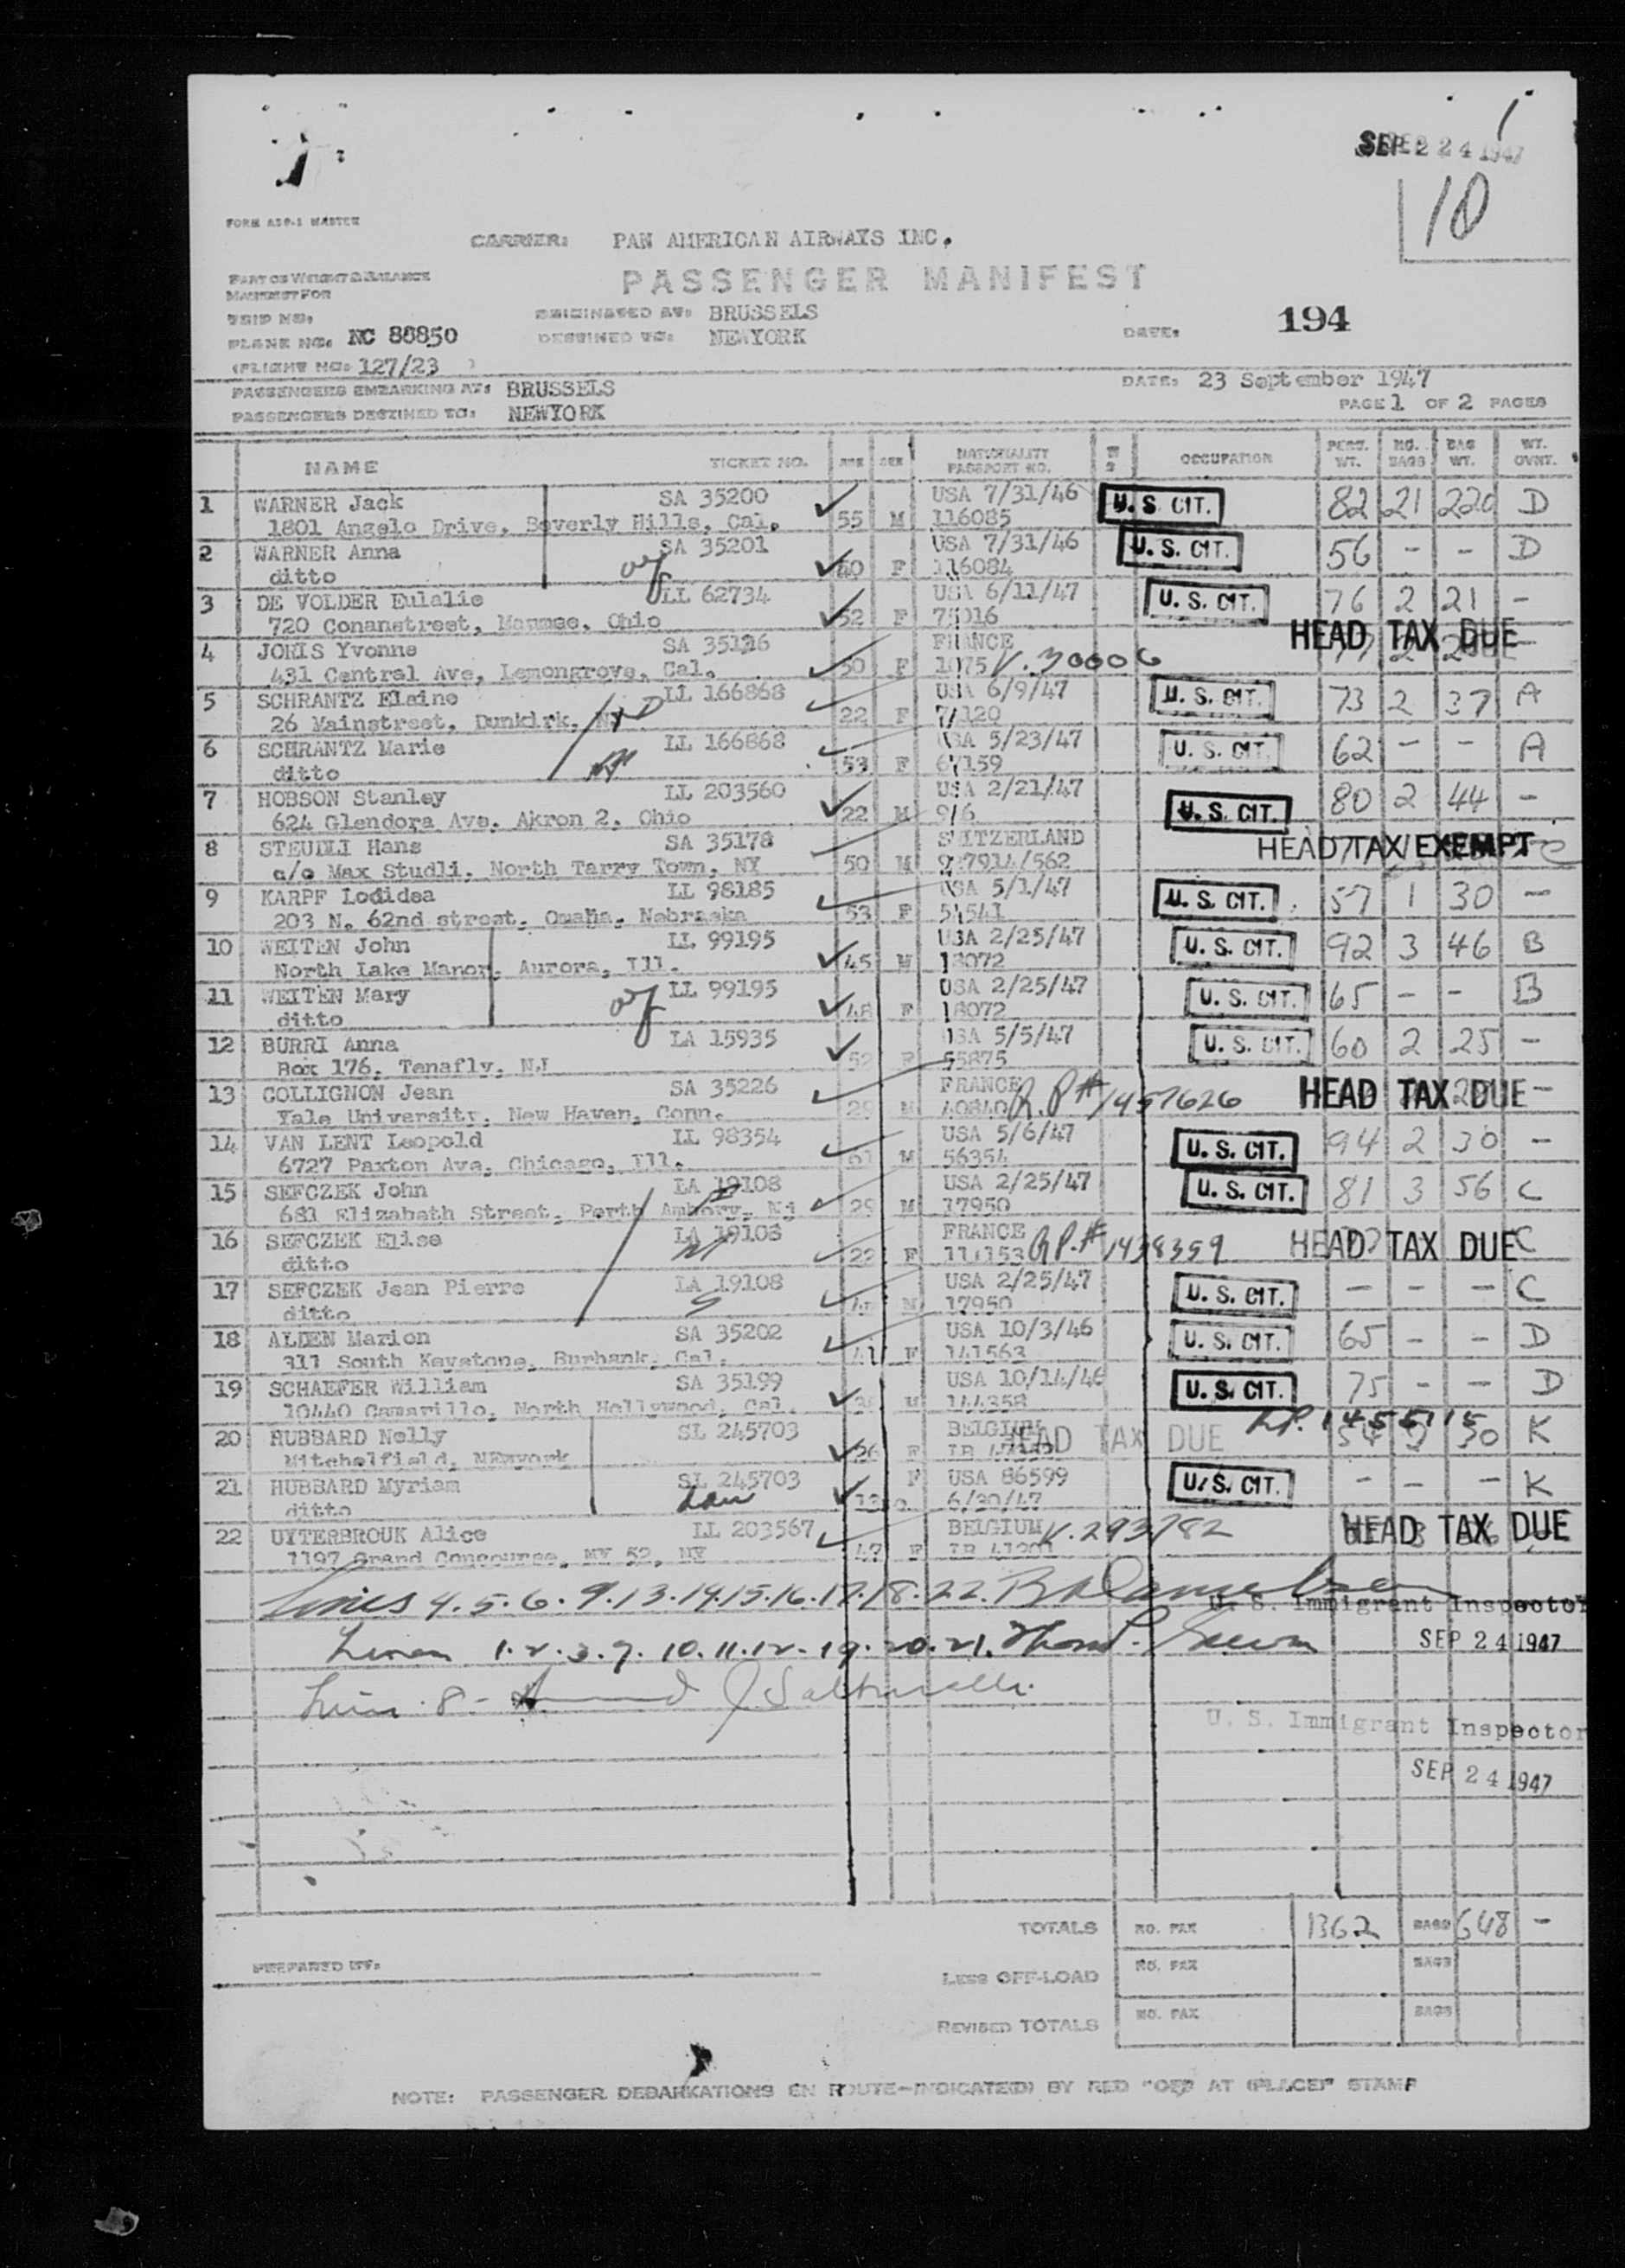 SEP 24 1947
10
FORM
CARRIER: PAN AMERICAN AIRWAYS INC.
PASSENGER MANIFEST
PART OF WEIGHT & BALANCE
MANIFEST FOR
TRIP NO:
ORIGINATED AT: BRUSSELS
194
PLANE NO:
DESTINED TO: NEWYORK
DATE:
(FLIGHT NO: 127/23 )
PASSENGERS EMBARKING AT: BRUSSELS
DATE: 23 September 1947
PASSENGERS DESTINED TO: NEWYORK
PAGE 1 OF 2 PAGES
NAME TICKET NO. AGE SEX NATIONALITY PASSPORT NO. OCCUPATION PERS. WT. NO. BAGS BAG WT. WT. OVNT.
1 WARNER Jack SA 35200 USA 7/31/46 U. S. CIT. 82 21 220 D
1801 Angelo Drive, Beverly Hills, Cal. 55 M 116085
2 WARNER Anna SA 35201 USA 7/31/46 U. S. CIT. 56 - - D
ditto 40 F 116084
3 DE VOLDER Eulalie LL 62734 USA 6/11/47 U. S. CIT. 76 2 21 -
720 Conanstreet, Maumee, Ohio 52 F
4 JORIS Yvonne SA FRANCE HEAD TAX DUE
431 Central Ave, Lemongrove, Cal. 50 F 1075 V. 30006
5 SCHRANTZ Elaine LL 166868 USA 6/9/47 U. S. CIT. 73 2 37 A
26 Mainstreet, Dunkirk, NY 22 F
6 SCHRANTZ Marie LL 166868 USA 5/23/47 U. S. CIT. 62 - - A
ditto 53 F
7 HOBSON Stanley LL 203560 USA 2/21/47 U. S. CIT. 80 2 44 -
624 Glendora Ave. Akron 2, Ohio 22 M
8 STEUDLI Hans SA 35178 SWITZERLAND HEAD TAX EXEMPT
c/o Max Studli, North Tarry Town, NY 50 M
9 KARPF Lodidea LL 98185 USA 5/1/47 U. S. CIT. 57 1 30 -
203 N. 62nd street, Omaha, Nebraska 53 F
10 WEITEN John LL 99195 USA 2/25/47 U. S. CIT. 92 3 46 B
North Lake Manor, Aurora, Ill. 45 M 18072
11 WEITEN Mary LL 99195 USA 2/25/47 U. S. CIT. 65 - - B
ditto 48 F 18072
12 BURRI Anna LA 15935 USA 5/5/47 U. S. CIT. 60 2 25 -
Box 176, Tenafly, NJ 52 F 55875
13 COLLIGNON Jean SA 35226 FRANCE HEAD TAX DUE -
Yale University, New Haven, Conn. 29 M 40840 R.P# 1457626
14 VAN LENT Leopold LL 98354 USA 5/6/47 U. S. CIT. 94 2 30 -
6727 Paxton Ave, Chicago, Ill. 61 M 56354
15 SEFCZEK John LA 19108 USA 2/25/47 U. S. CIT. 81 3 56 C
681 Elizabeth Street, Perth Amboy, NJ 29 M 17950
16 SEFCZEK Elise LA 19108 FRANCE HEAD TAX DUE C
ditto 22 F R.P.# 1438359
17 SEFCZEK Jean Pierre LA 19108 USA 2/25/47 U. S. CIT. - - - C
ditto M 17950
18 ALDEN Marion SA 35202 USA 10/3/46 U. S. CIT. 65 - - D
311 South Keystone, Burbank, Cal. 41 F 141563
19 SCHAEFER William SA 35199 USA 10/14/46 U. S. CIT. 75 - - D
10440 Camarillo, North Hollywood, Cal. M 144358
20 HUBBARD Nelly SL 245703 BELGIUM HEAD TAX DUE K
Mitchelfield, NEwyork 26 F
21 HUBBARD Myriam SL 245703 F USA 86599 U. S. CIT. - - - K
ditto 6/30/47
22 UYTERBROUK Alice LL 203567 BELGIUM V. 293782 HEAD TAX DUE
1197 Grand Concourse, NY 52, NY 47 F
Lines 4.5.6.9.13.14.15.16.17.18.22.
U. S. Immigrant Inspector
Lines 1.2.3.7.10.11.12.19.20.21.
SEP 24 1947
Line 8 -
U. S. Immigrant Inspector
SEP 24 1947
TOTALS NO. PAX 1362 BAGS 648 -
PREPARED BY:
LESS OFF-LOAD NO. PAX BAGS
REVISED TOTALS NO. PAX BAGS
NOTE: PASSENGER DEBARKATIONS EN ROUTE-INDICATE(D) BY RED "OFF AT (PLACE)" STAMP